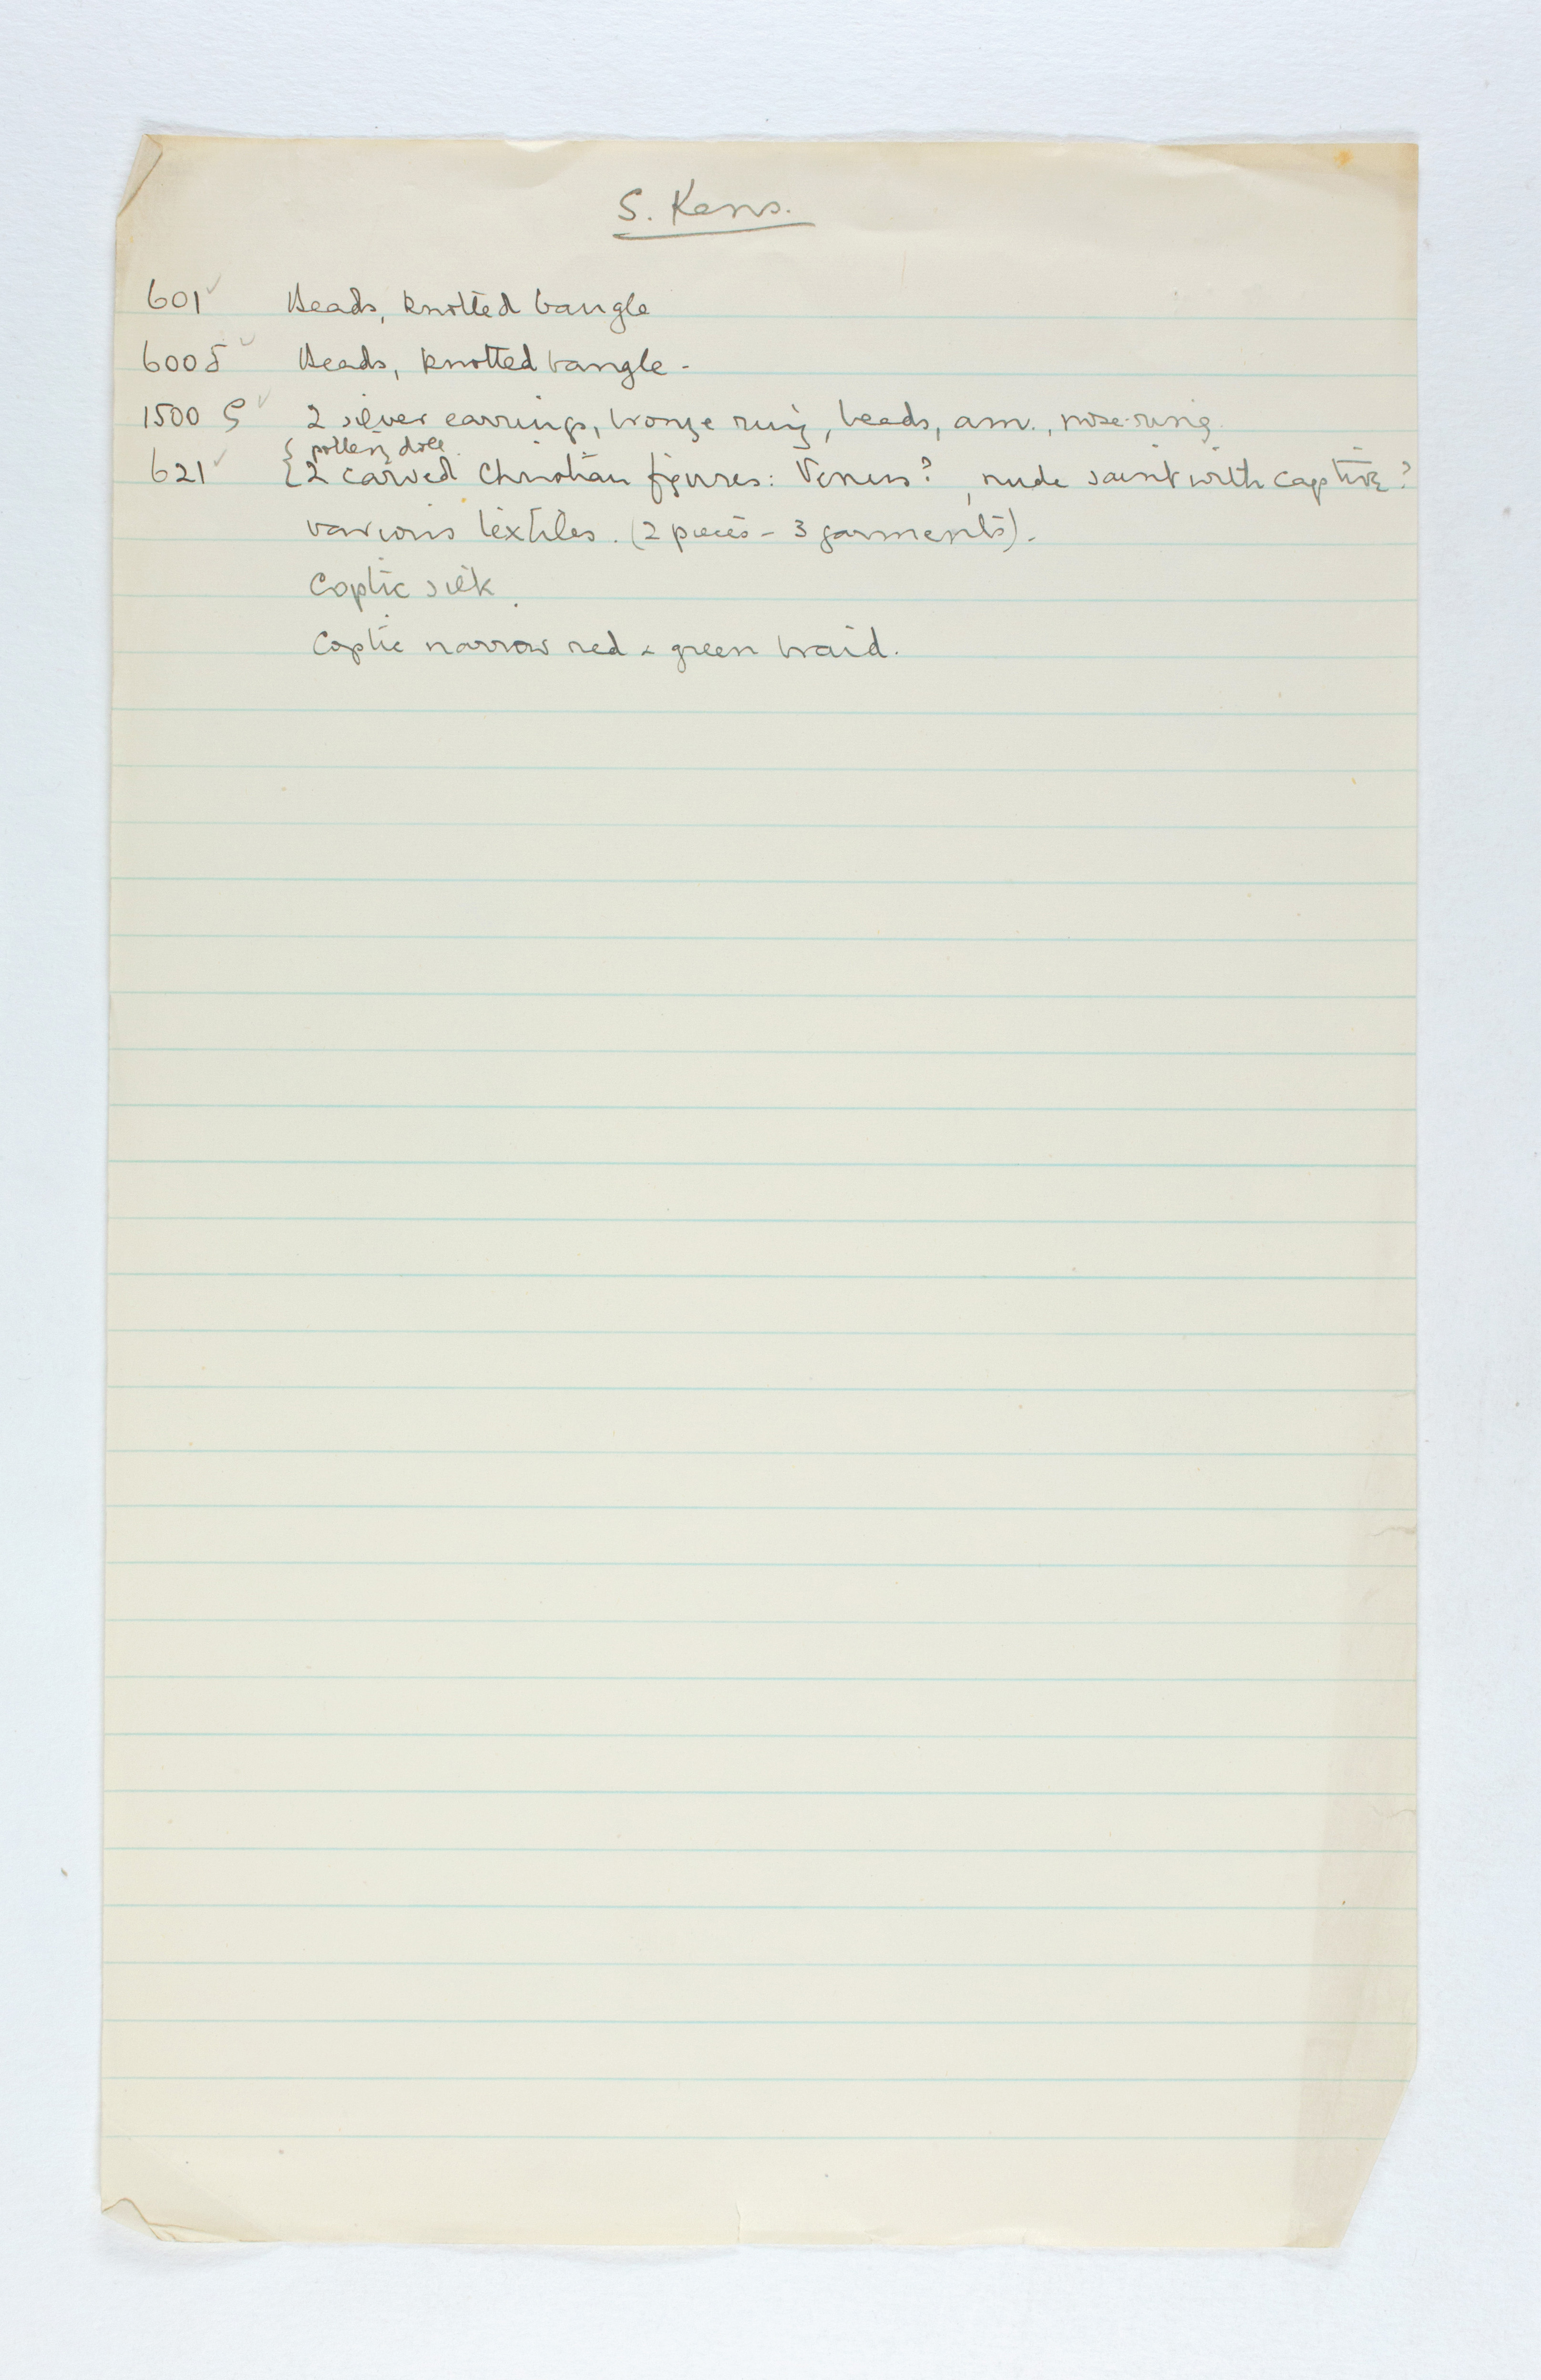 S. Kens.
601 ✓ Beads, knotted bangle
600 δ ✓ Beads, knotted bangle -
1500 ς ✓ 2 silver earrings, bronze ring, beads, am., nose-ring.
{ pottery doll.
621 ✓ { 2 carved Christian figures: Venus? , nude saint with captive?
various textiles. (2 pieces - 3 garments).
Coptic silk.
Coptic narrow red & green braid.